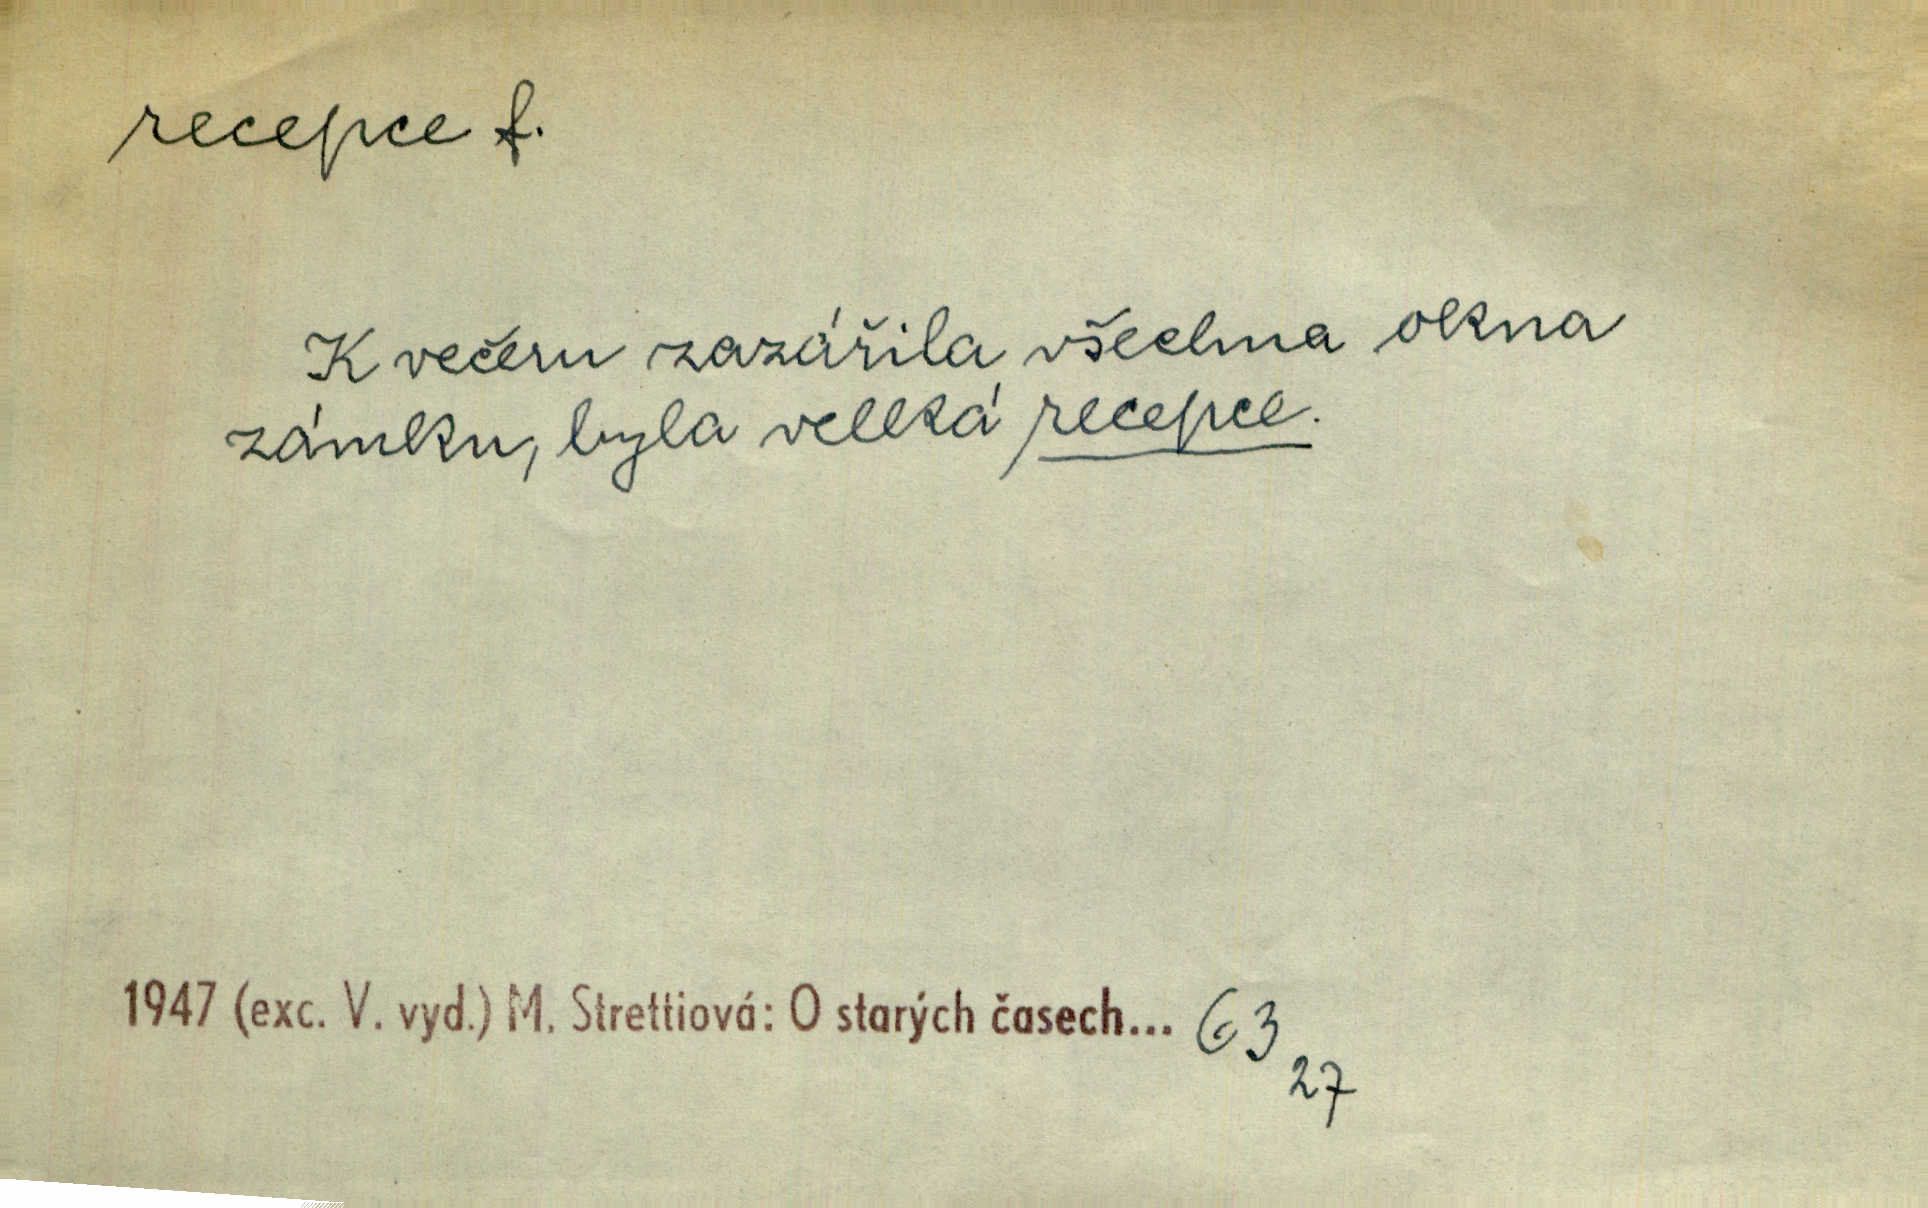 recepce f.
K večeru zazářila všechna okna
zámku, byla velká recepce.
1947 (exc. V. vyd.) M. Strettiová: O starých časech... 63
27